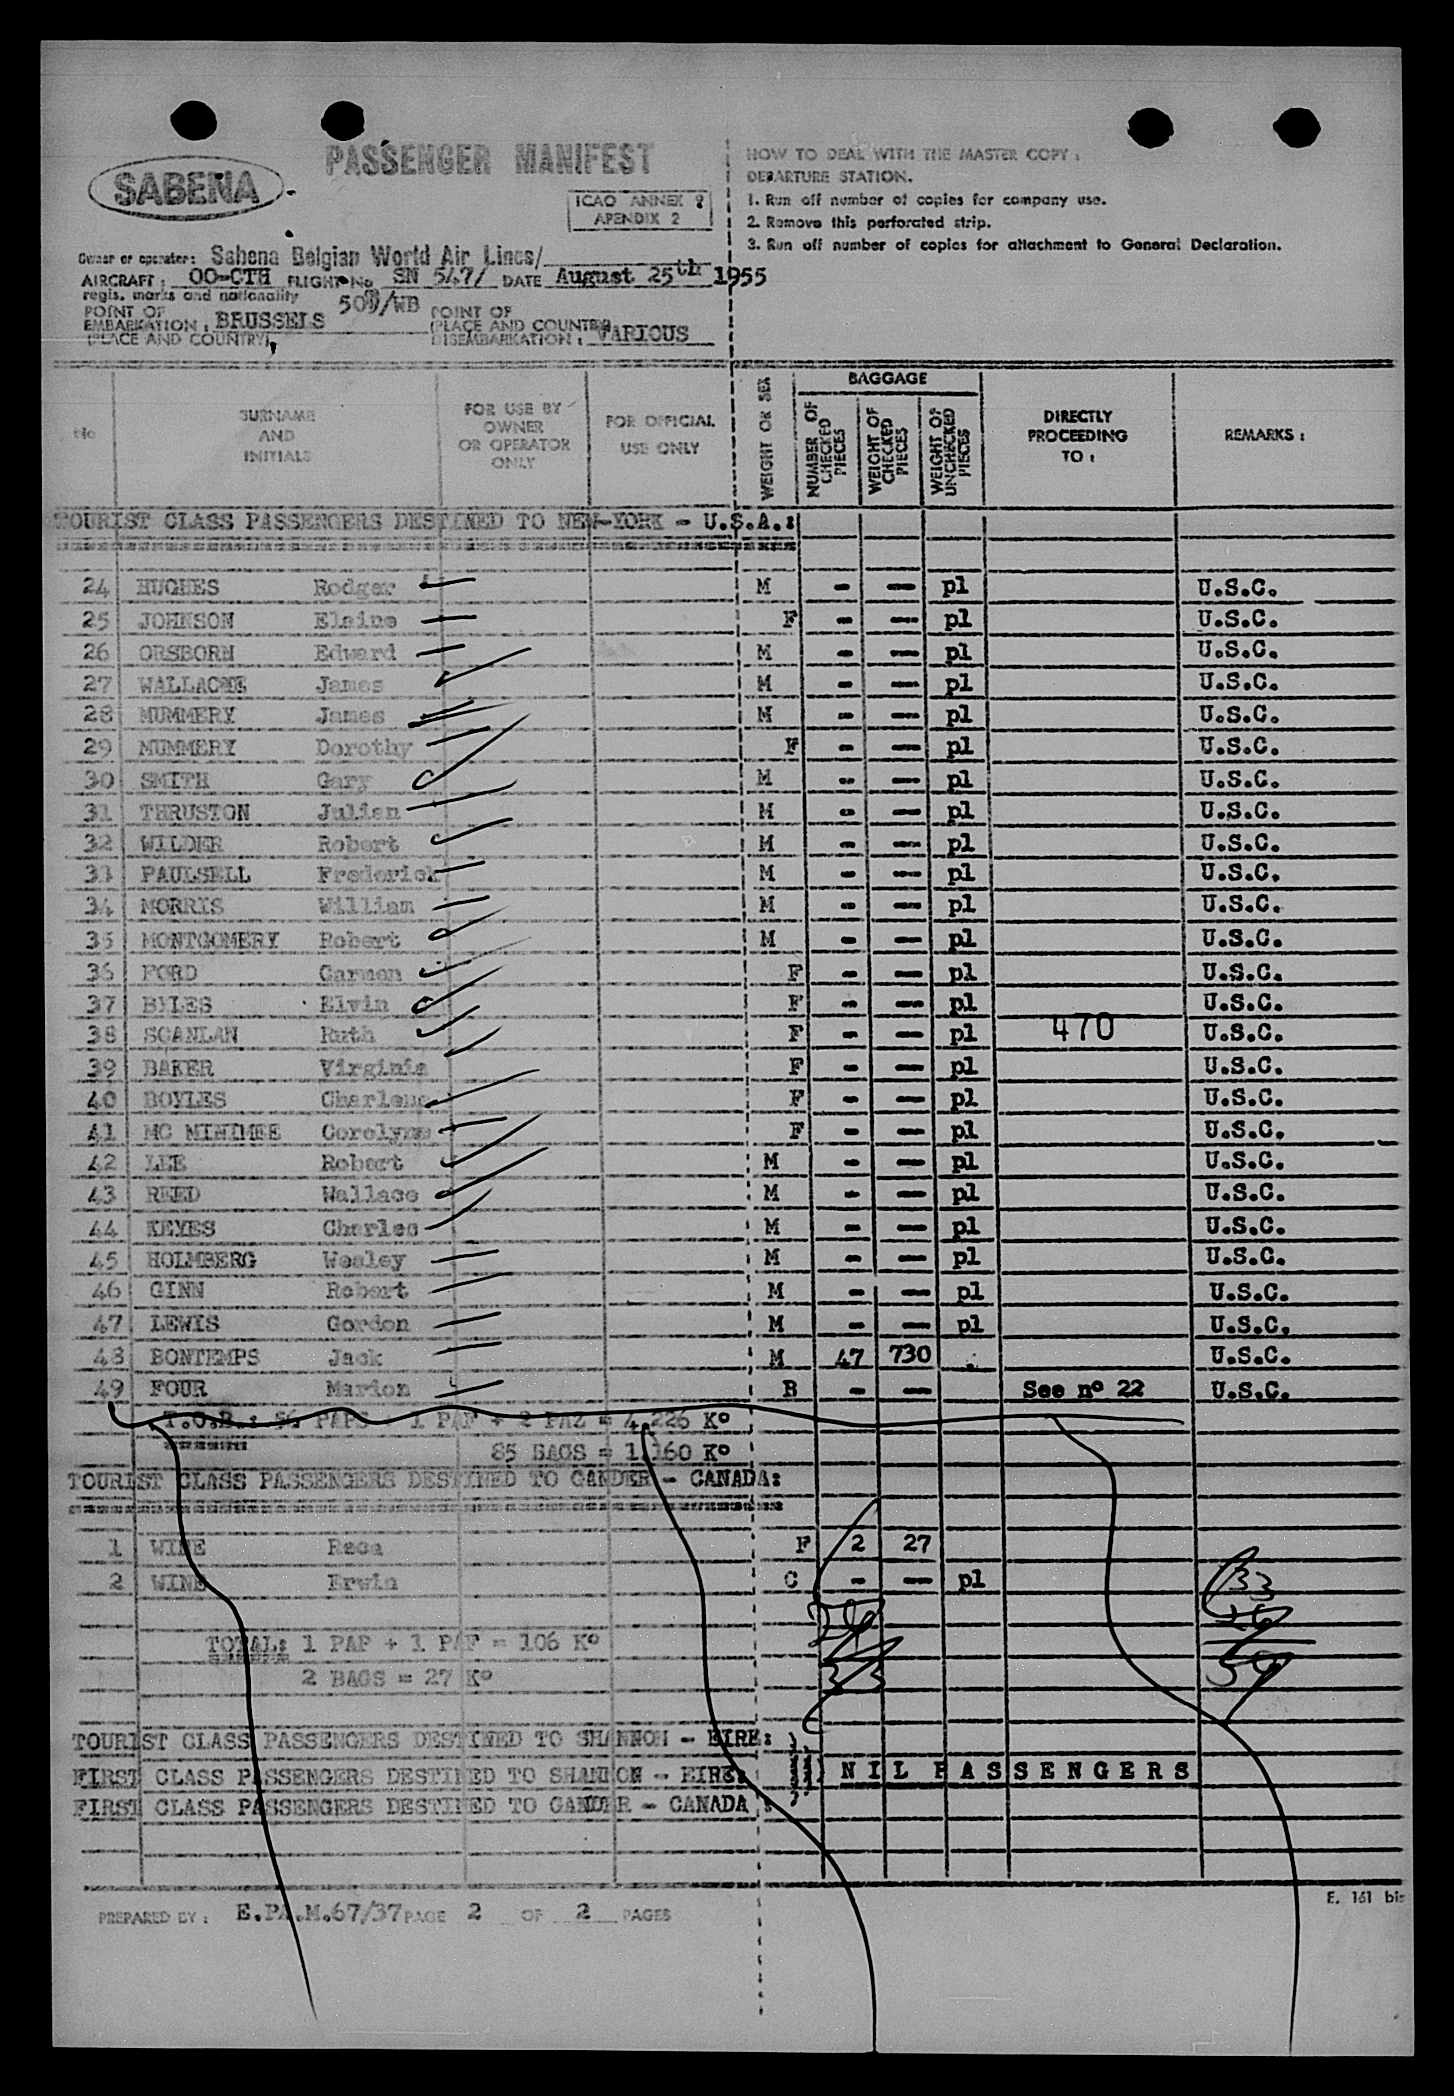 PASSENGER MANIFEST
SABENA
ICAO ANNEX 9
APENDIX 2
HOW TO DEAL WITH THE MASTER COPY :
DEPARTURE STATION.
1. Run off number of copies for company use.
2. Remove this perforated strip.
3. Run off number of copies for attachment to General Declaration.
Owner or operater: Sabena Belgian World Air Lines/
AIRCRAFT : OO-CTH FLIGHT No SN 547/ DATE August 25th 1955
regis. marks and nationality 509/WB
POINT OF EMBARKATION : BRUSSELS (PLACE AND COUNTRY)
POINT OF (PLACE AND COUNTRY) DISEMBARKATION : VARIOUS
No
SURNAME AND INITIALS
FOR USE BY OWNER OR OPERATOR ONLY
FOR OFFICIAL USE ONLY
WEIGHT OR SEX
BAGGAGE
NUMBER OF CHECKED PIECES
WEIGHT OF CHECKED PIECES
WEIGHT OF UNCHECKED PIECES
DIRECTLY PROCEEDING TO :
REMARKS :
TOURIST CLASS PASSENGERS DESTINED TO NEW-YORK - U.S.A.:
24 HUGHES Rodger M - - pl U.S.C.
25 JOHNSON Elaine F - - pl U.S.C.
26 ORSBORN Edward M - - pl U.S.C.
27 James M - - pl U.S.C.
28 MUMMERY James M - - pl U.S.C.
29 MUMMERY Dorothy F - - pl U.S.C.
30 SMITH Gary M - - pl U.S.C.
31 THRUSTON Julien M - - pl U.S.C.
32 WILDER Robert M - - pl U.S.C.
33 PAULSELL Frederick M - - pl U.S.C.
34 MORRIS William M - - pl U.S.C.
35 MONTGOMERY Robert M - - pl U.S.C.
36 FORD Carmen F - - pl U.S.C.
37 BYLES Elvin F - - pl U.S.C.
38 SCANLAN Ruth F - - pl 470 U.S.C.
39 BAKER Virginia F - - pl U.S.C.
40 BOYLES Charlene F - - pl U.S.C.
41 MC MINIMEE Corolynn F - - pl U.S.C.
42 LEE Robert M - - pl U.S.C.
43 REED Wallace M - - pl U.S.C.
44 KEYES Charles M - - pl U.S.C.
45 HOLMBERG Wesley M - - pl U.S.C.
46 GINN Robert M - - pl U.S.C.
47 LEWIS Gordon M - - pl U.S.C.
48 BONTEMPS Jack M 47 730 U.S.C.
49 FOUR Marion B - - See nº 22 U.S.C.
PAPS + 1 PAF + 2 PAZ = 4.226 Kº
85 BAGS = 1.160 Kº
TOURIST CLASS PASSENGERS DESTINED TO GANDER - CANADA:
1 WINE Rega F 2 27
2 WINE Erwin C - - pl
33
26
59
TOTAL: 1 PAP + 1 PAF = 106 Kº
2 BAGS = 27 Kº
33
TOURIST CLASS PASSENGERS DESTINED TO SHANNON - EIRE:
FIRST CLASS PASSENGERS DESTINED TO SHANNON - EIRE: NIL PASSENGERS
FIRST CLASS PASSENGERS DESTINED TO GANDER - CANADA :
E. 161 bis
PREPARED BY : E.PA.M.67/37 PAGE 2 OF 2 PAGES